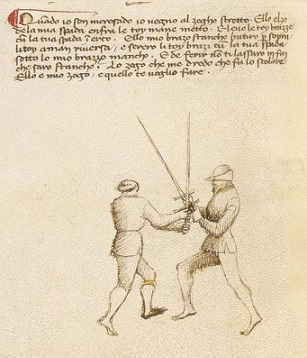 Quādo io son incrosado io vegno al zogho stretto. Ello elzo
de la mia spada enfra le toy mane metto. E leuo le toy brazze
cū la tua spada ī erto. Ello mio brazo stancho butirò p sopra
li toy a man riuersa, e serero li toy brazi cū la tua spada
sotto lo mio brazzo mancho. E de ferir nō ti lassarò in fin
che sarò stancho. Lo zogo che me dredo che fa lo scolaro
Ello e mio zogo, e quello te voglio fare.